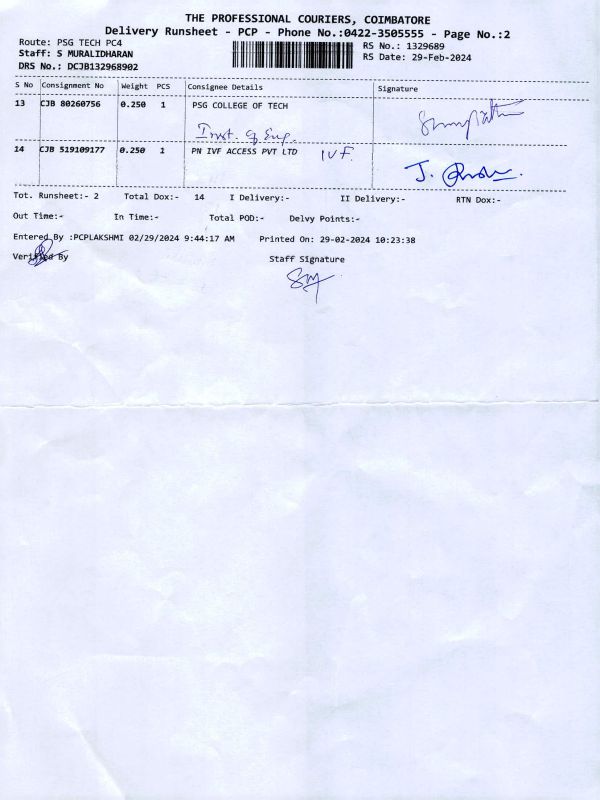 THE PROFESSIONAL COURIERS, COIMBATORE
Delivery Runsheet - PCP - Phone No.:0422-3505555 - Page No.:2
Route: PSG TECH PC4
Staff: S MURALIDHARAN
DRS No.: DCJB132968902
RS No.: 1329689
RS Date: 29-Feb-2024
S No Consignment No Weight PCS Consignee Details Signature
13 CJB 80260756 0.250 1 PSG COLLEGE OF TECH
Inst. of Eng.
14 CJB 519109177 0.250 1 PN IVF ACCESS PVT LTD IVF.
Tot. Runsheet:- 2 Total Dox:- 14 I Delivery:- II Delivery:- RTN Dox:-
Out Time:- In Time:- Total POD:- Delvy Points:-
Entered By :PCPLAKSHMI 02/29/2024 9:44:17 AM Printed On: 29-02-2024 10:23:38
Verified By Staff Signature